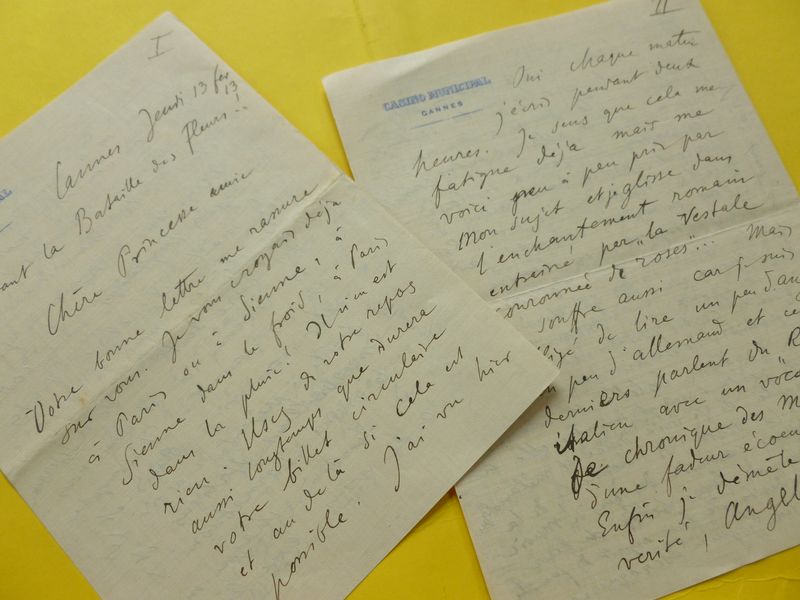 I
Cannes Jeudi 13 fev
13
ant la Bataille des Fleurs!!
Chère Princesse amie
Votre bonne lettre me rassure
sur vous. Je vous croyais déjà
à Paris ou à Sienne, à
Sienne dans le froid, à Paris
dans la pluie! Il n'en est
rien. Usez de votre repos
aussi longtemps que durera
votre billet circulaire
et au delà si cela est
possible. J'ai vu hier
II
CASINO MUNICIPAL
CANNES
Oui chaque matin
j'écris pendant deux
heures. Je sens que cela me
fatigue déja mais me
voici peu à peu pris par
mon sujet et je glisse dans
l'enchantement romain
entrainé par "la Vestale
couronnée de roses"... Mais
souffre aussi car je suis
igé de lire un peu d'an
un peu d'allemand et ce
derniers parlent du "R
italien avec un voca
chronique des M
d'une fadeur écoeu
Enfin je démêle
verité, Angel